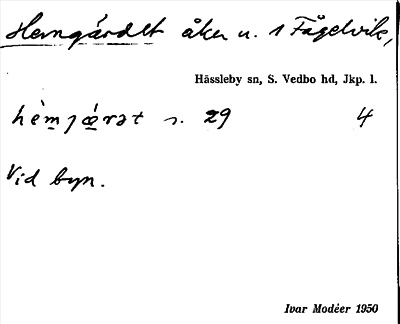 Hemgärdet åker u. 1 Fågelvik,
Hässleby sn, S. Vedbo hd, Jkp. l.
hèmjæ̀rət s. 29 4
Vid byn.
Ivar Modéer 1950